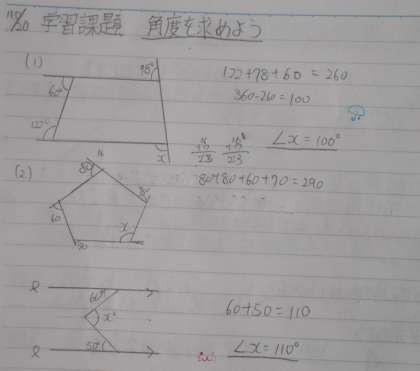 11/20 学習課題 角度を求めよう
(1)
98°
62°
122°
x
122+78+60=260
360-260=100
∠x=100°
(2)
80
70
60
80
x
80+80+60+70=290
ℓ
60°
x°
50°
ℓ
60+50=110
∠x=110°